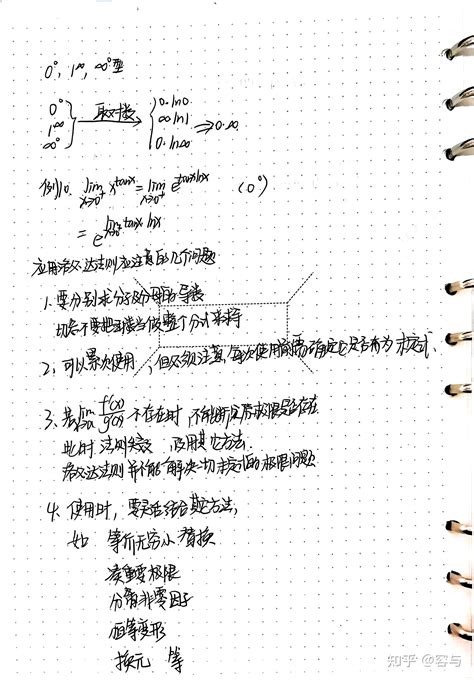 0⁰, 1^∞, ∞⁰型
0⁰
1^∞
∞⁰
取对数
0·ln0
∞ln1
0·ln∞
⇒0·∞
例10. lim x→0⁺ x^tanx = lim x→0⁺ e^tanxlnx (0⁰)
= e^lim x→0⁺ tanx lnx
应用洛必达法则应注意的几个问题
1. 要分别求分子及分母的导数
切忌不要把函数当做整个分式来求导
2. 可以累次使用, 但必须注意, 每次使用前需确定它是否为未定式.
3. 若lim f'(x)/g'(x) 不存在时, 不能断定原极限是否存在
此时 法则失效 应用其它方法.
洛必达法则并不能解决一切未定式的极限问题
4. 使用时, 要灵活结合其它方法,
如 等价无穷小替换
重要极限
分离非零因子
恒等变形
换元 等
知乎 @容与